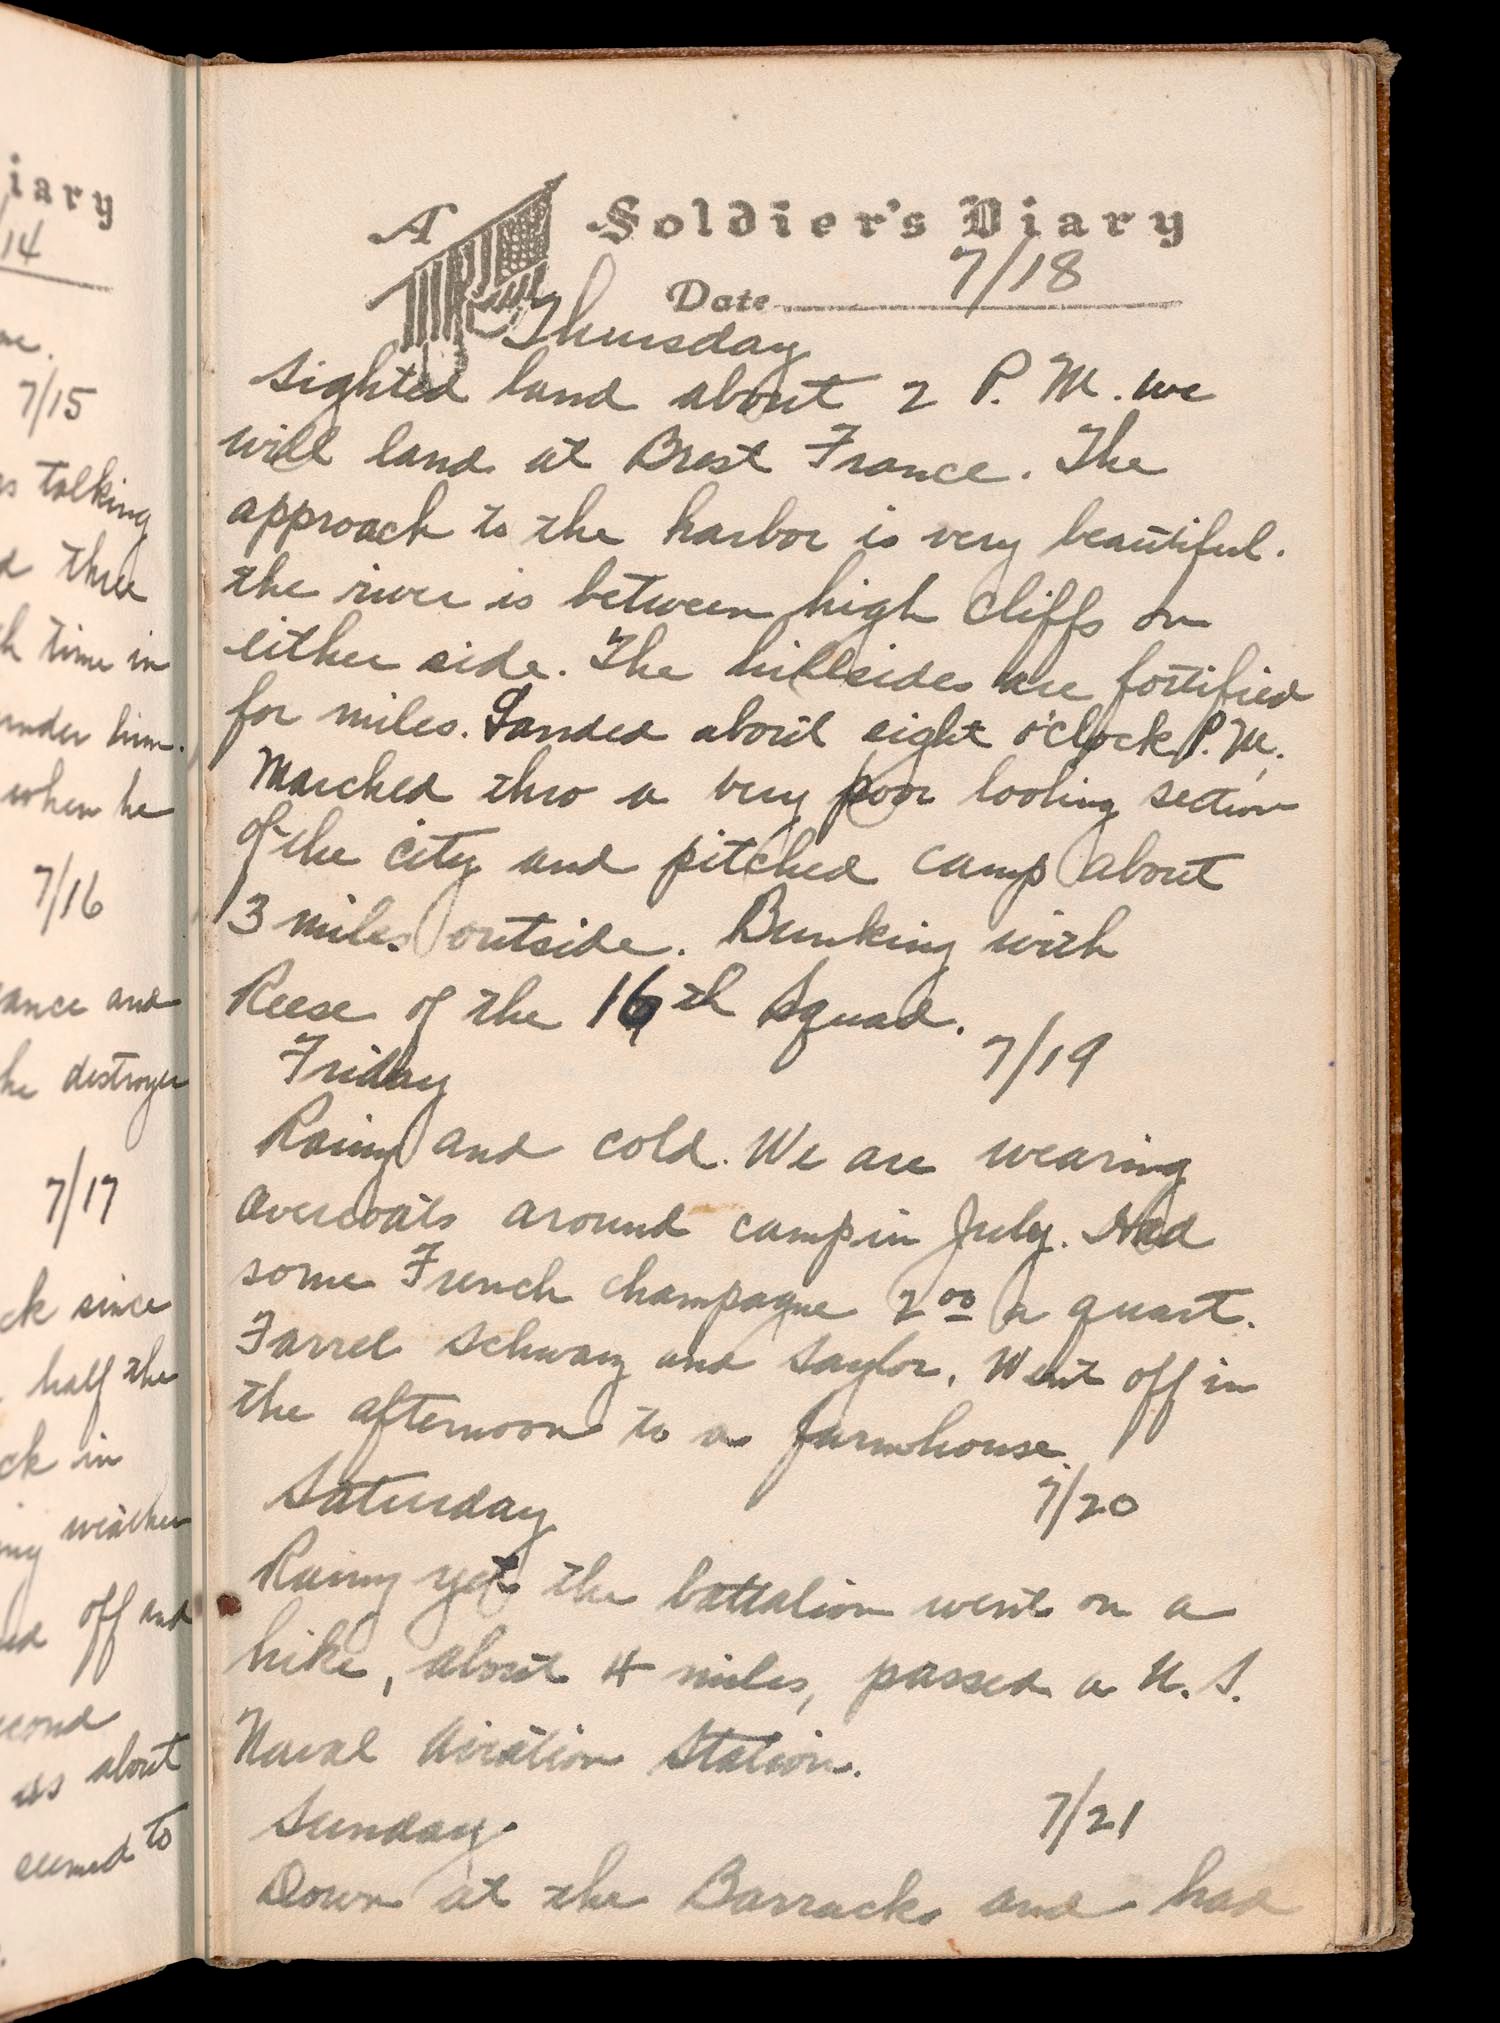 iary
14
7/15
talking
three
time in
under him.
when he
7/16
and
destroyer
7/17
ck since
half the
ck in
weather
off and
second
us about
seemed to
A Soldier's Diary
Date 7/18
Thursday
Sighted land about 2 P.M. we
will land at Brest France. The
approach to the harbor is very beautiful.
the river is between high cliffs on
either side. The hillsides are fortified
for miles. Landed about eight o'clock P.M.
Marched thro a very poor looking section
of the city and pitched camp about
3 miles outside. Bunking with
Reese of the 16th Squad.
Friday 7/19
Rainy and cold. We are wearing
overcoats around camp in July. Had
some French champagne 2 00 a quart.
Farrel Schwarz and Saylor. Went off in
the afternoon to a farmhouse.
Saturday 7/20
Rainy yet the battalion went on a
hike, about 4 miles, passed a U.S.
Naval Aviation Station.
Sunday. 7/21
Down at the Barracks and had